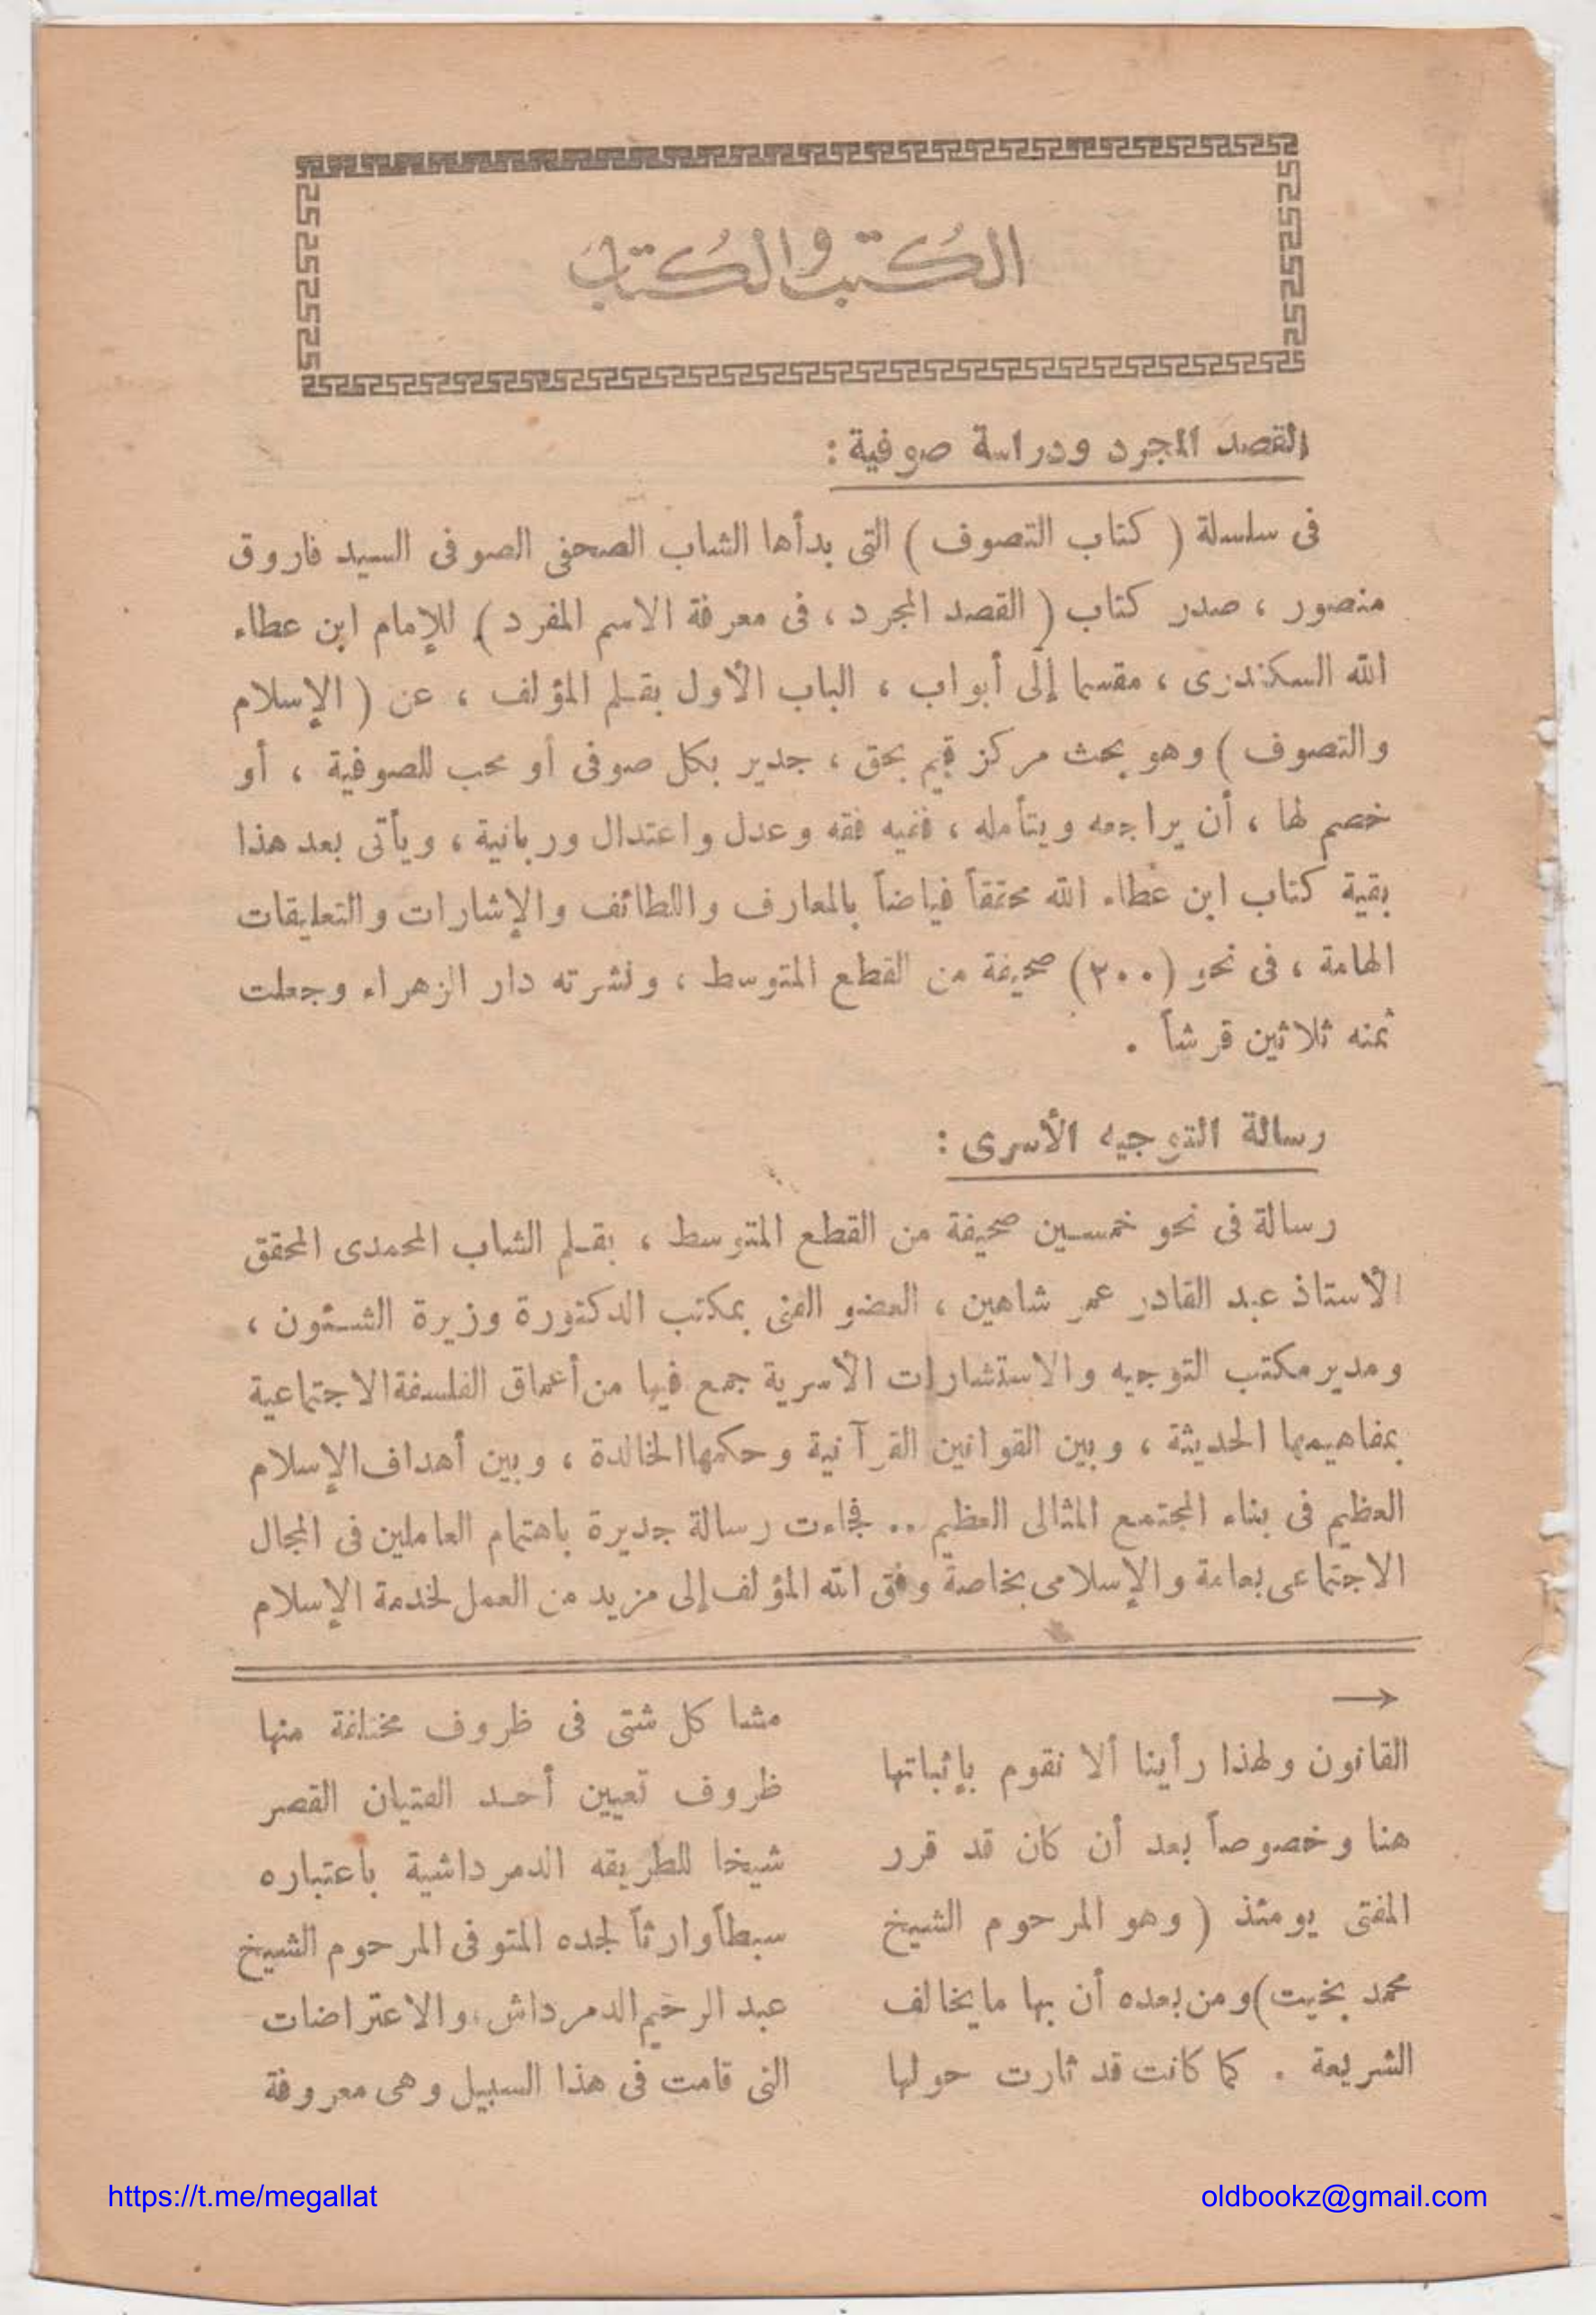 الكُتب والكُتاب
القصد المجرد ودراسة صوفية :
فى سلسلة ( كتاب التصوف ) التى بدأها الشاب الصحفى الصوفى السيد فاروق
منصور ، صدر كتاب ( القصد المجرد ، فى معرفة الاسم المفرد ) للإمام ابن عطاء
الله السكندرى ، مقسما إلى أبواب ، الباب الأول بقلم المؤلف ، عن ( الإسلام
والتصوف ) وهو بحث مركز قيم بحق ، جدير بكل صوفى أو محب للصوفية ، أو
خصم لها ، أن يراجعه ويتأمله ، ففيه فقه وعدل واعتدال وربانية ، ويأتى بعد هذا
بقية كتاب ابن عطاء الله محققاً فياضاً بالمعارف واللطائف والإشارات والتعليقات
الهامة ، فى نحو (٢٠٠) صحيفة من القطع المتوسط ، ونشرته دار الزهراء وجعلت
ثمنه ثلاثين قرشاً .
رسالة التوجيه الأسرى :
رسالة فى نحو خمسين صحيفة من القطع المتوسط ، بقلم الشاب المحمدى المحقق
الأستاذ عبد القادر عمر شاهين ، العضو الفنى بمكتب الدكتورة وزيرة الشئون ،
ومدير مكتب التوجيه والاستشارات الأسرية جمع فيها من أعماق الفلسفة الاجتماعية
بمفاهيمها الحديثة ، وبين القوانين القرآنية وحكمها الخالدة ، وبين أهداف الإسلام
العظيم فى بناء المجتمع المثالى العظيم .. فجاءت رسالة جديرة باهتمام العاملين فى المجال
الاجتماعى بعامة والإسلامى بخاصة وفق الله المؤلف إلى مزيد من العمل لخدمة الإسلام
→
القانون ولهذا رأينا ألا نقوم بإثباتها
هنا وخصوصاً بعد أن كان قد قرر
المفتى يومئذ ( وهو المرحوم الشيخ
محمد بخيت ) ومن بعده أن بها ما يخالف
الشريعة . كما كانت قد ثارت حولها
مشاكل شتى فى ظروف مختلفة منها
ظروف تعيين أحد الفتيان القصر
شيخا للطريقه الدمرداشية باعتباره
سبطاً وارثاً لجده المتوفى المرحوم الشيخ
عبد الرحيم الدمرداش ، والاعتراضات
التى قامت فى هذا السبيل وهى معروفة
https://t.me/megallat
oldbookz@gmail.com